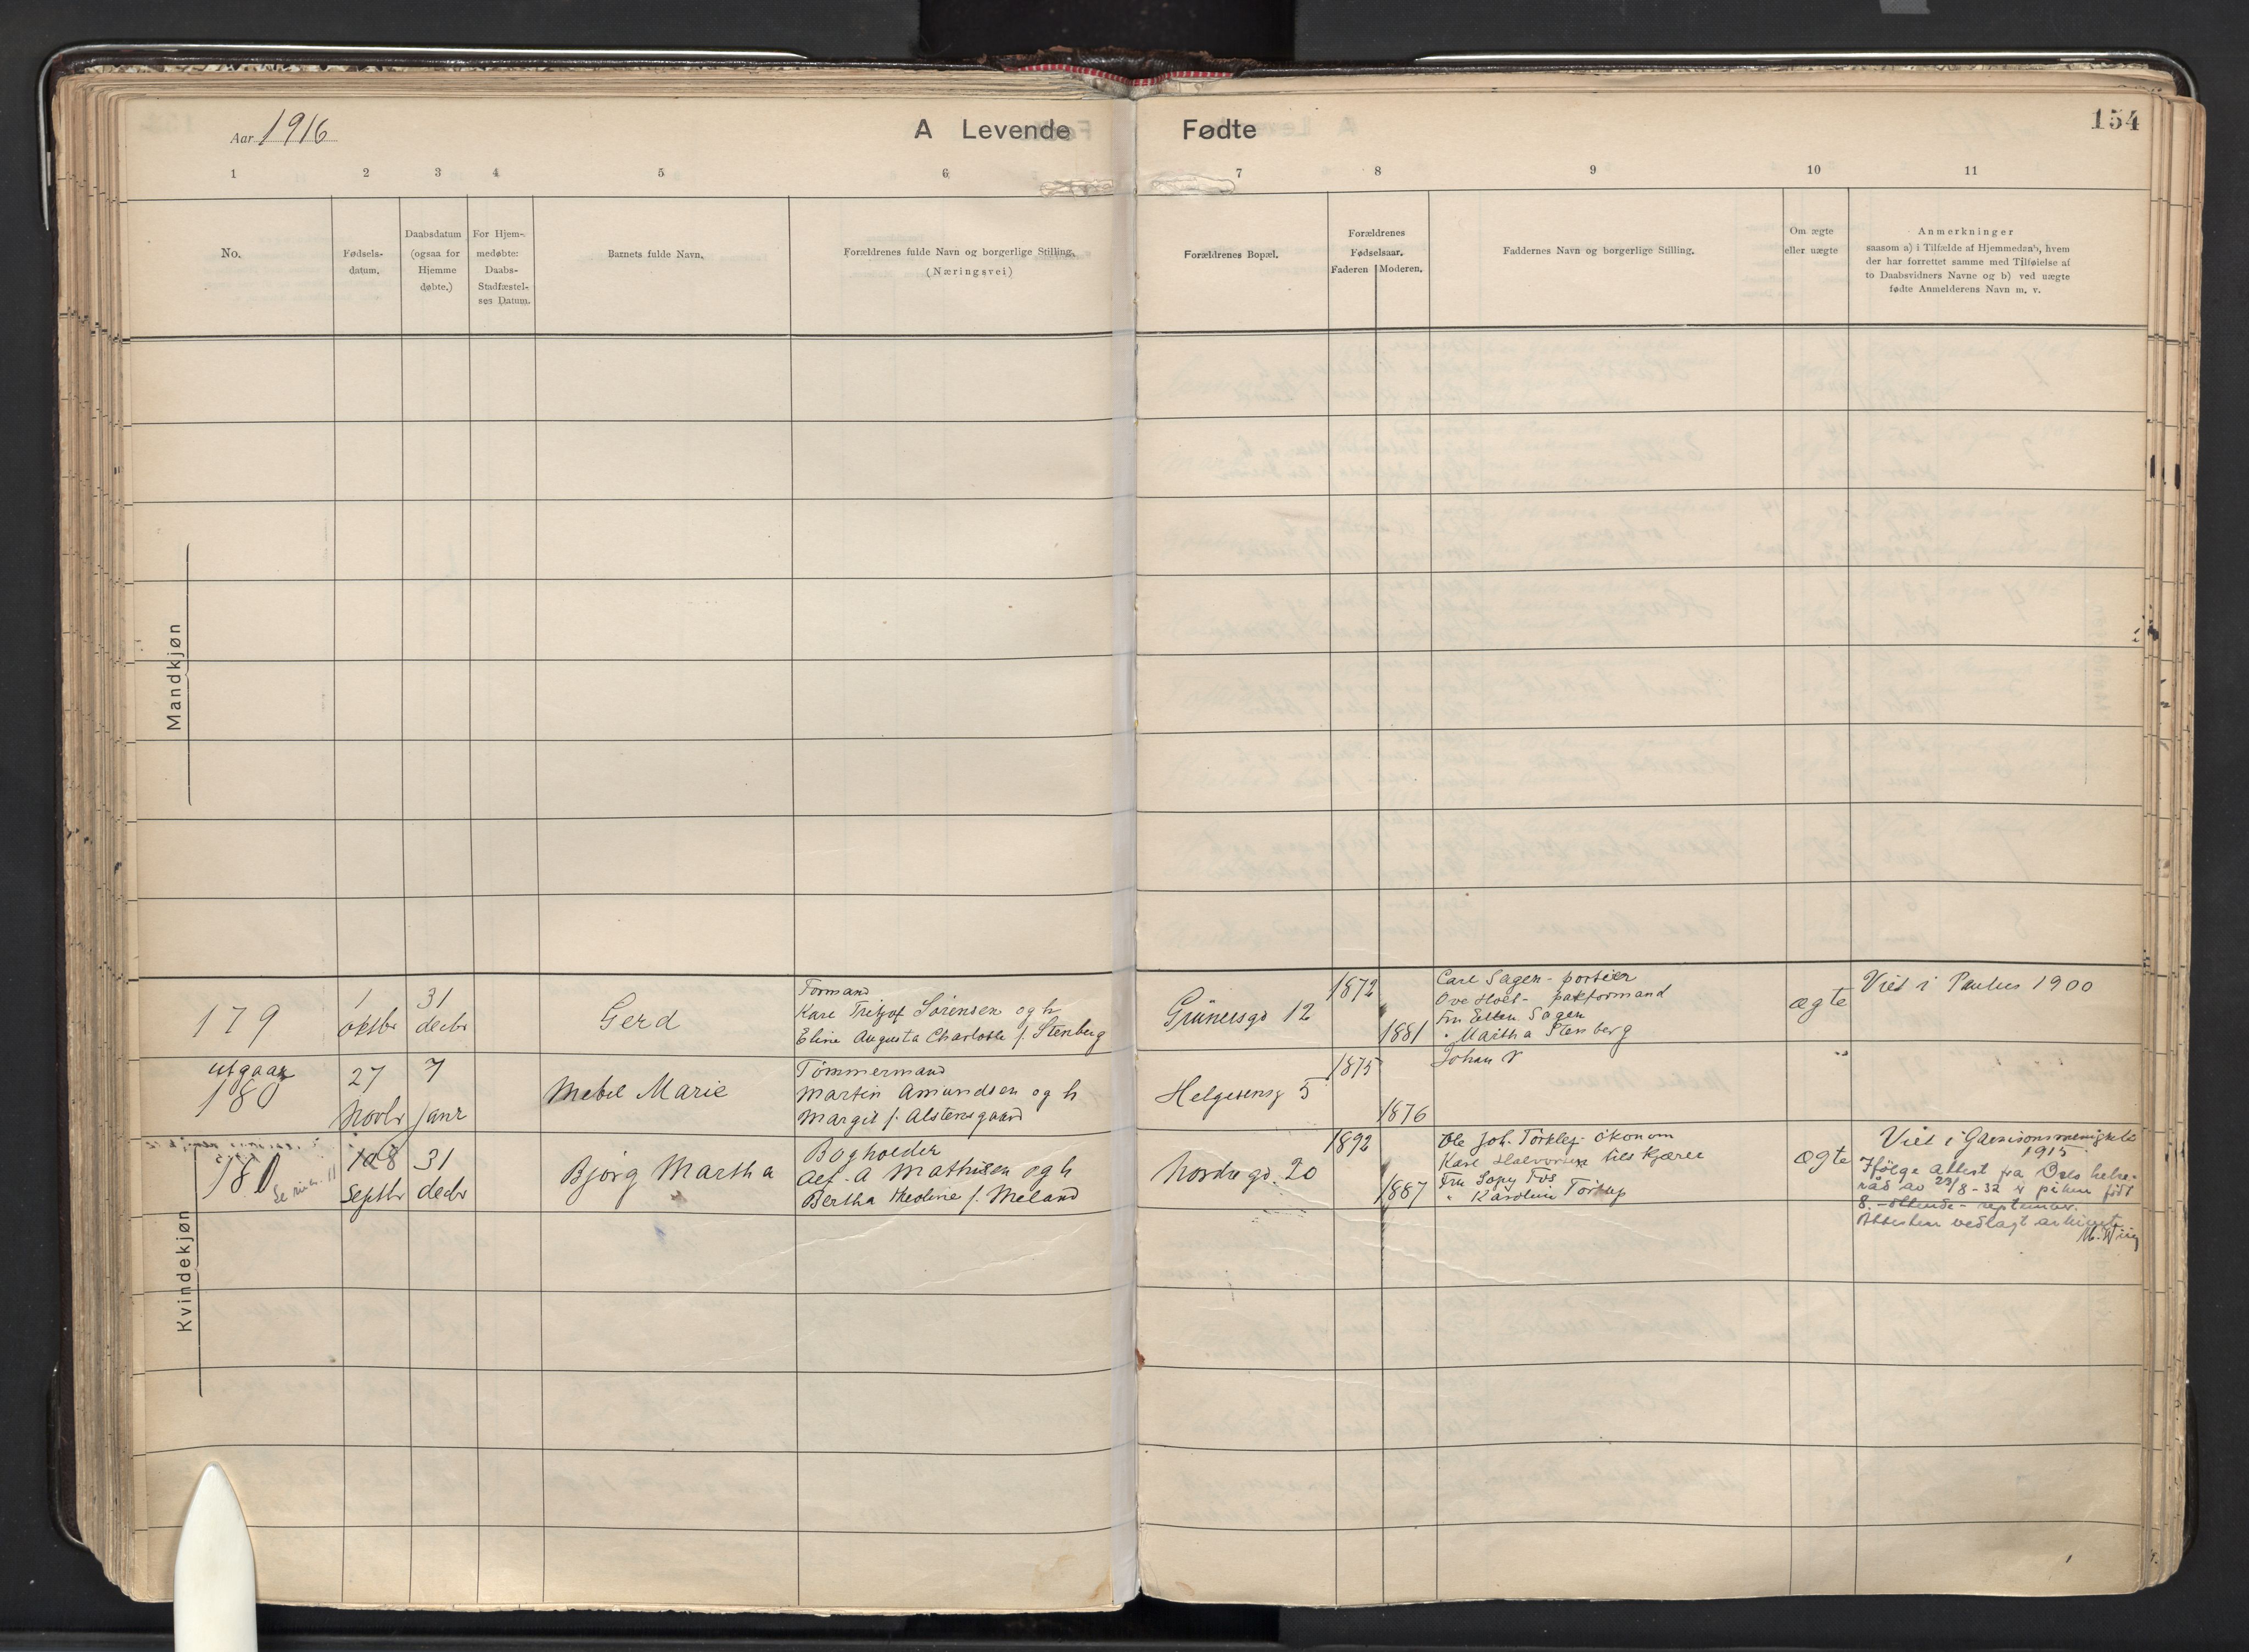 Aar 1916
A Levende Fødte
154
1 2 3 4 5 6 7 8 9 10 11
No.
Fødsels-
datum.
Daabsdatum
(ogsaa for
Hjemme
døbte.)
For Hjem-
medøbte:
Daabs-
Stadfæstel-
ses Datum.
Barnets fulde Navn.
Forældrenes fulde Navn og borgerlige Stilling.
(Næringsvei)
Forældrenes Bopæl.
Forældrenes
Fødselsaar.
Faderen Moderen.
Faddernes Navn og borgerlige Stilling.
Om ægte
eller uægte
Anmerkninger
saasom a) i Tilfælde af Hjemmedaab, hvem
der har forrettet samme med Tilføielse af
to Daabsvidners Navne og b) ved uægte
fødte Anmelderens Navn m. v.
Mandkjøn
Kvindekjøn
179
1
oktbr
31
decbr
Gerd
Formand
Karl Fritjof Sørensen og h
Eline Augusta Charlotte f. Stenberg
Grünersgd 12
1872
1881
Carl Sagen - portier
Ove Holt - pakformand
Fru Ellen Sagen
" Martha Stenberg
ægte
Viet i Paulus 1900
utgaar
180
27
Novbr
7
janr
Mabel Marie
Tømmermand
Martin Amundsen og h
Margit f. Alstensgaard
Helgesensg 5
1875
1876
Johan
"
180
8
Septbr
31
decbr
Bjørg Martha
Bogholder
Alf. A Mathisen og h
Bertha Theoline f. Meland
Nordregd. 20
1892
1887
Ole Joh. Torklep - økonom
Karl Halvorsen tilskjærer
Fru Sofy Fos
" Karoline Torklep
ægte
Viet i Garnisonsmenighet
1915
Ifølge attest fra Oslo helse-
råd av 29/8-32 er piken født
8. - ottende - september.
Attesten vedlagt arkivet.